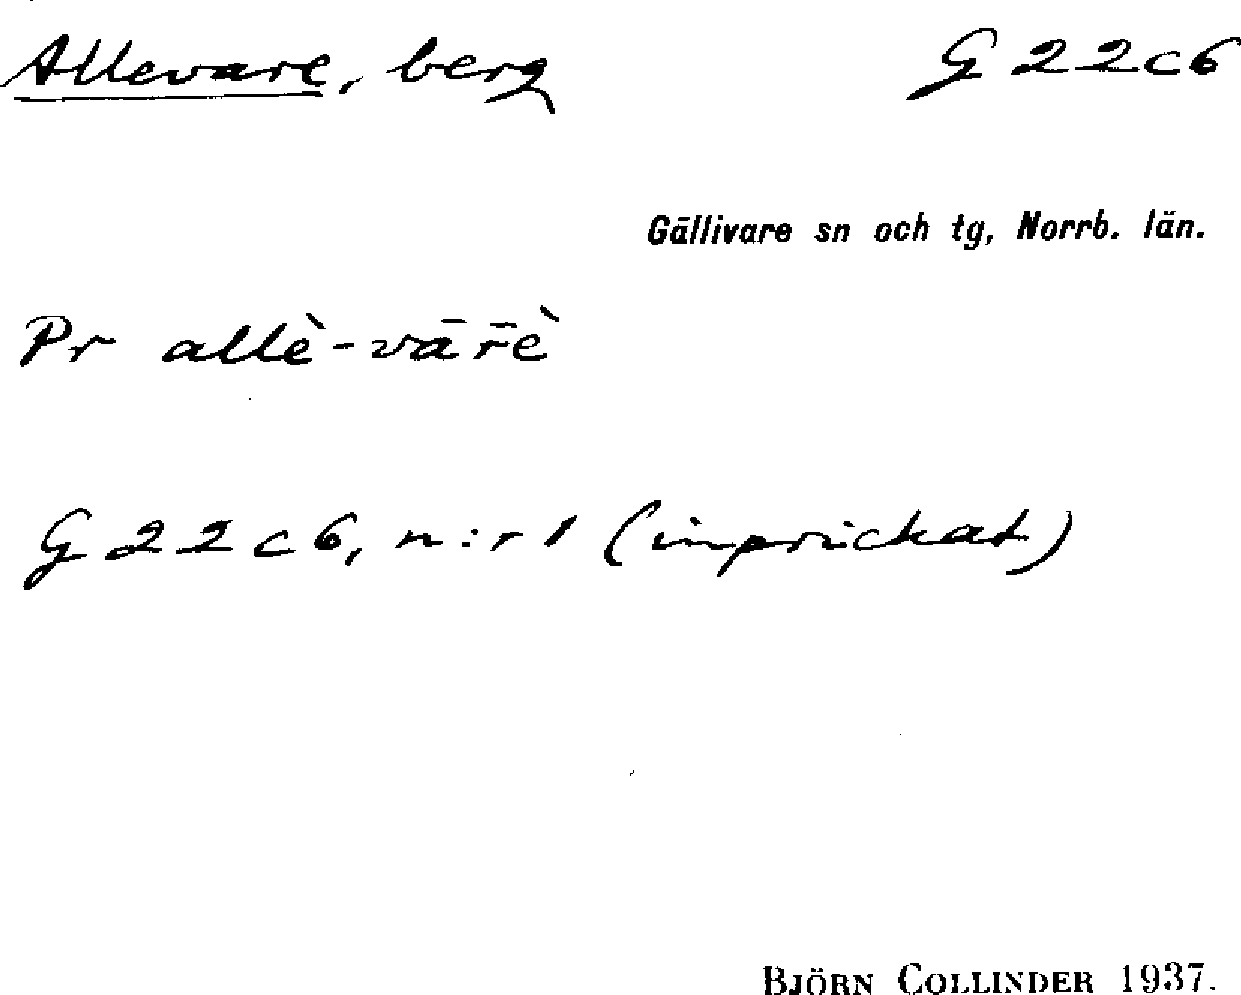 Allevare, berg G22c6
Gällivare sn och tg, Norrb. län.
Pr allè-vār̄è
G22c6, n:r 1 (inprickat)
BJÖRN COLLINDER 1937.